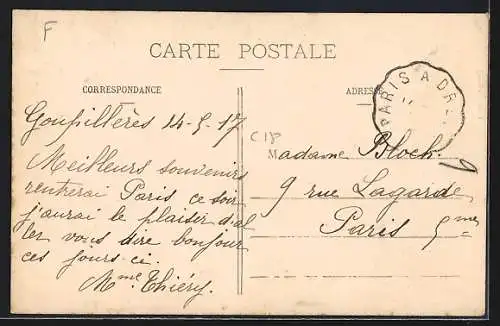 F
CARTE POSTALE
CORRESPONDANCE
ADRES
PARIS A DR
Goupillères 24-5-17
C18
Meilleurs souvenirs
rentrerai Paris ce soir
j'aurai le plaisir d'al
ler vous dire bonjour
ces jours-ci.
Mme Thiéry.
Madame Bloch.
9 rue Lagarde
Paris 5me